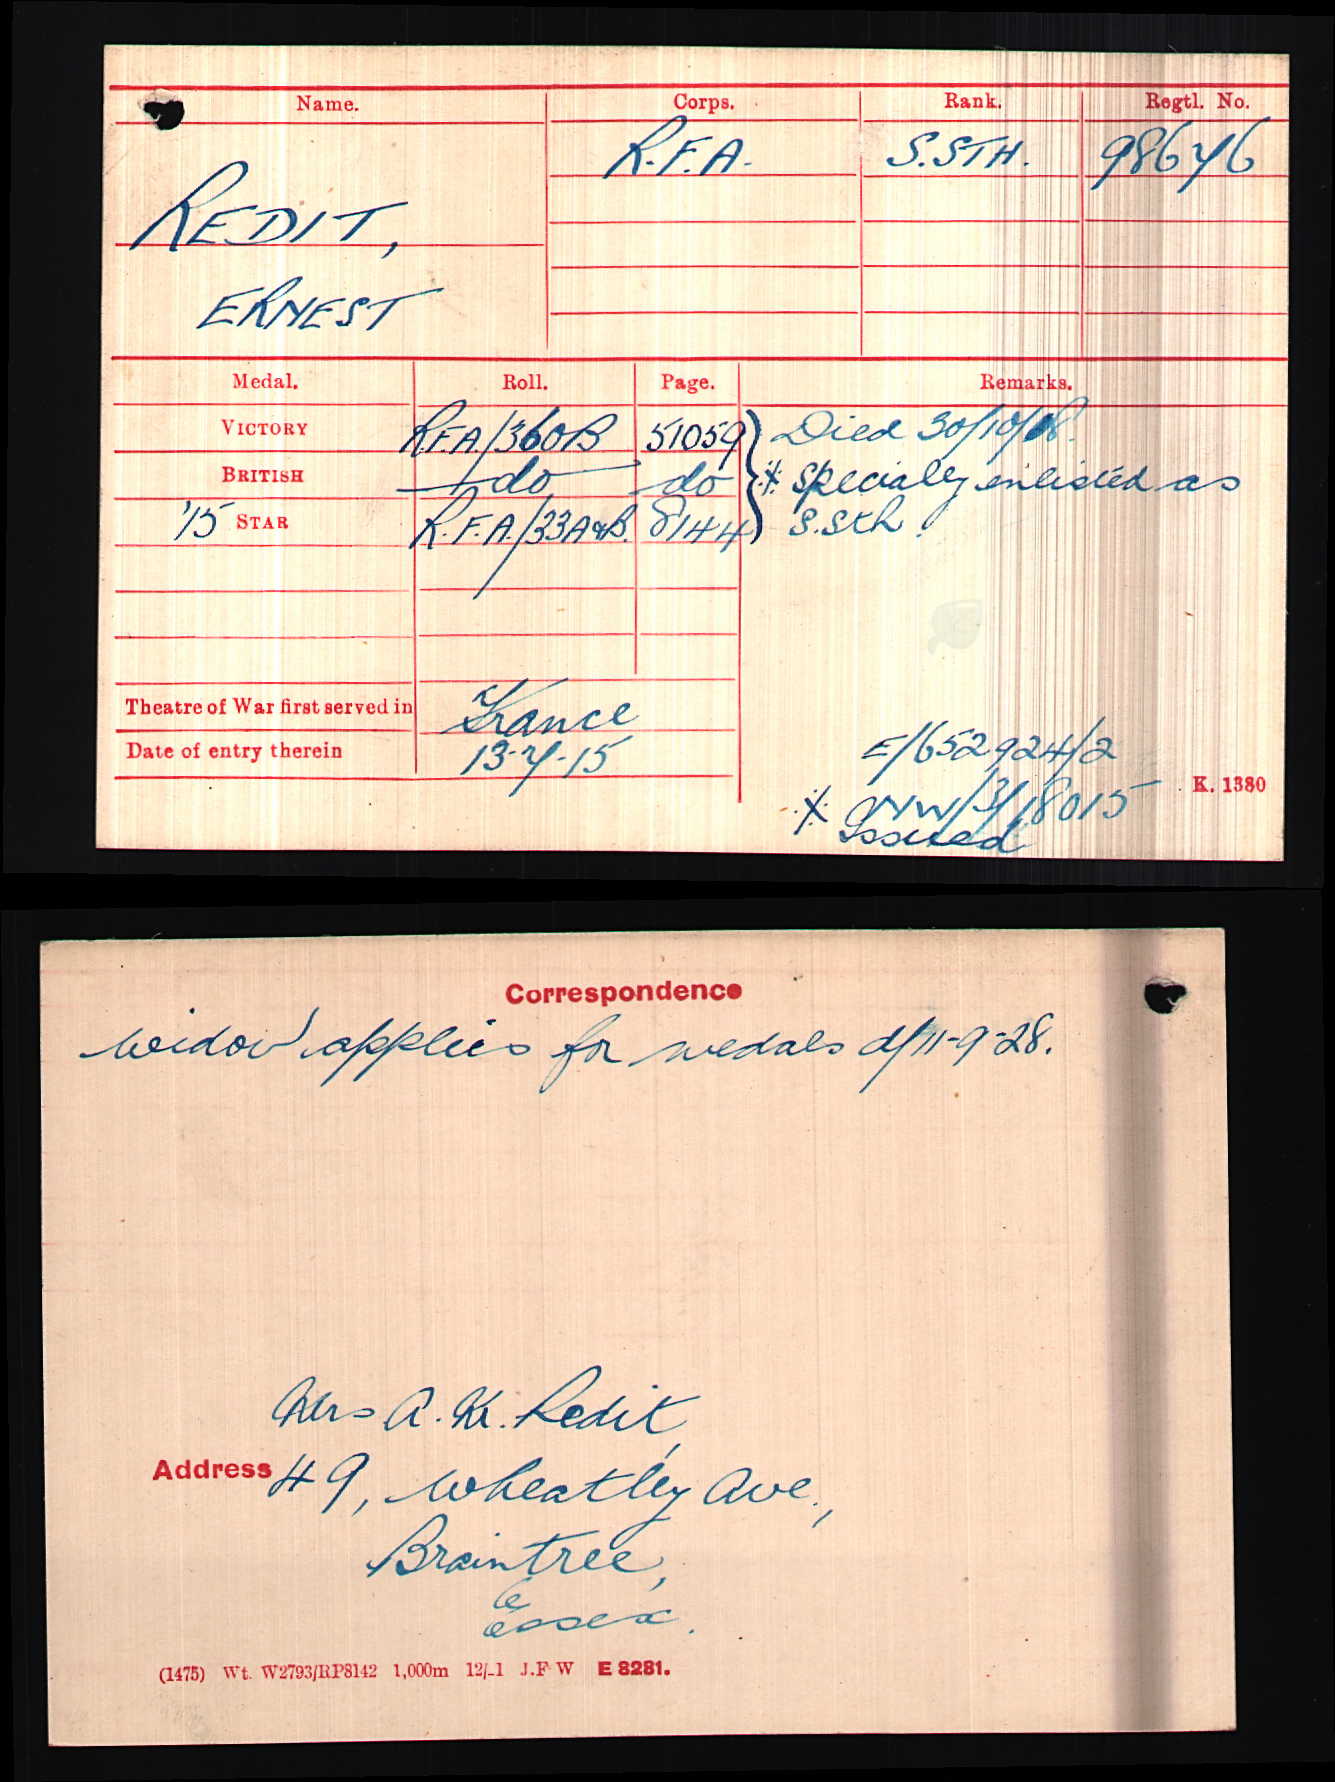 Name. Corps. Rank. Regtl. No.
R.F.A. S.STH. 98646
REDIT,
ERNEST
Medal. Roll. Page. Remarks.
VICTORY R.F.A./360B 51059 Died 30/10/18.
BRITISH do do * Specially enlisted as
'15 STAR R.F.A./33A&B. 8144 S.Sth.
Theatre of War first served in France
Date of entry therein 13-7-15
E/652924/2
K. 1380
* NW/3/18015
Issued
Correspondence
Widow applies for medals d/11-9-28.
Mrs A. K. Redit,
Address 49, Wheatley Ave.,
Braintree,
Essex.
(1475) Wt. W2793/RP8142 1,000m 12/-1 J.F W E 8281.